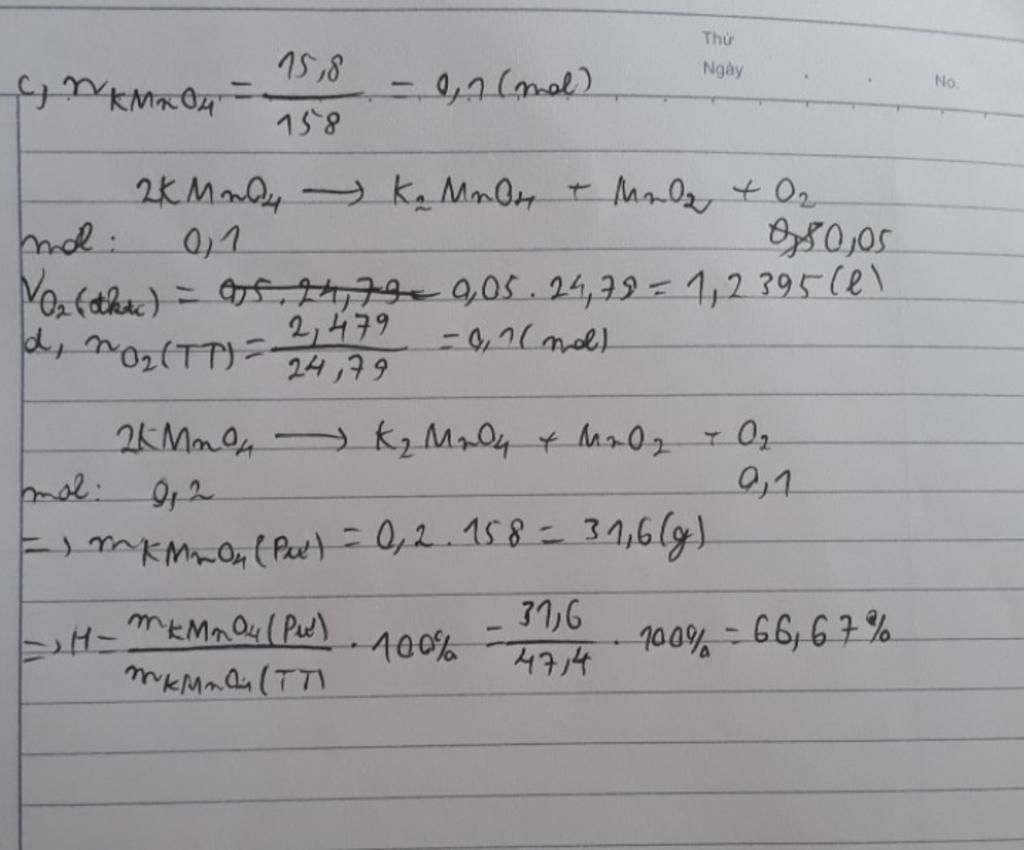 Thứ
Ngày . . No.
c, nKMnO4 = 15,8 / 158 = 0,1 (mol)
2KMnO4 → K2MnO4 + MnO2 + O2
mol: 0,1 0,05
VO2(đktc) = 0,5.24,79 0,05.24,79 = 1,2395 (l)
d, nO2(TT) = 2,479 / 24,79 = 0,1 (mol)
2KMnO4 → K2MnO4 + MnO2 + O2
mol: 0,2 0,1
=> mKMnO4(Put) = 0,2.158 = 31,6 (g)
=> H = mKMnO4(Put) / mKMnO4(TT) . 100% = 31,6 / 47,4 . 100% = 66,67%